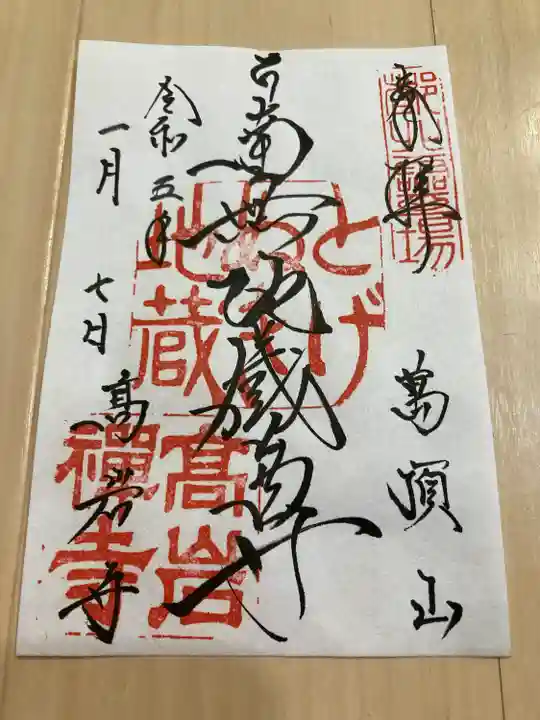 奉拝
萬頂山
霊場
地蔵
とげぬき
地蔵
髙岩
禪寺
令和五年
一月七日
髙岩寺